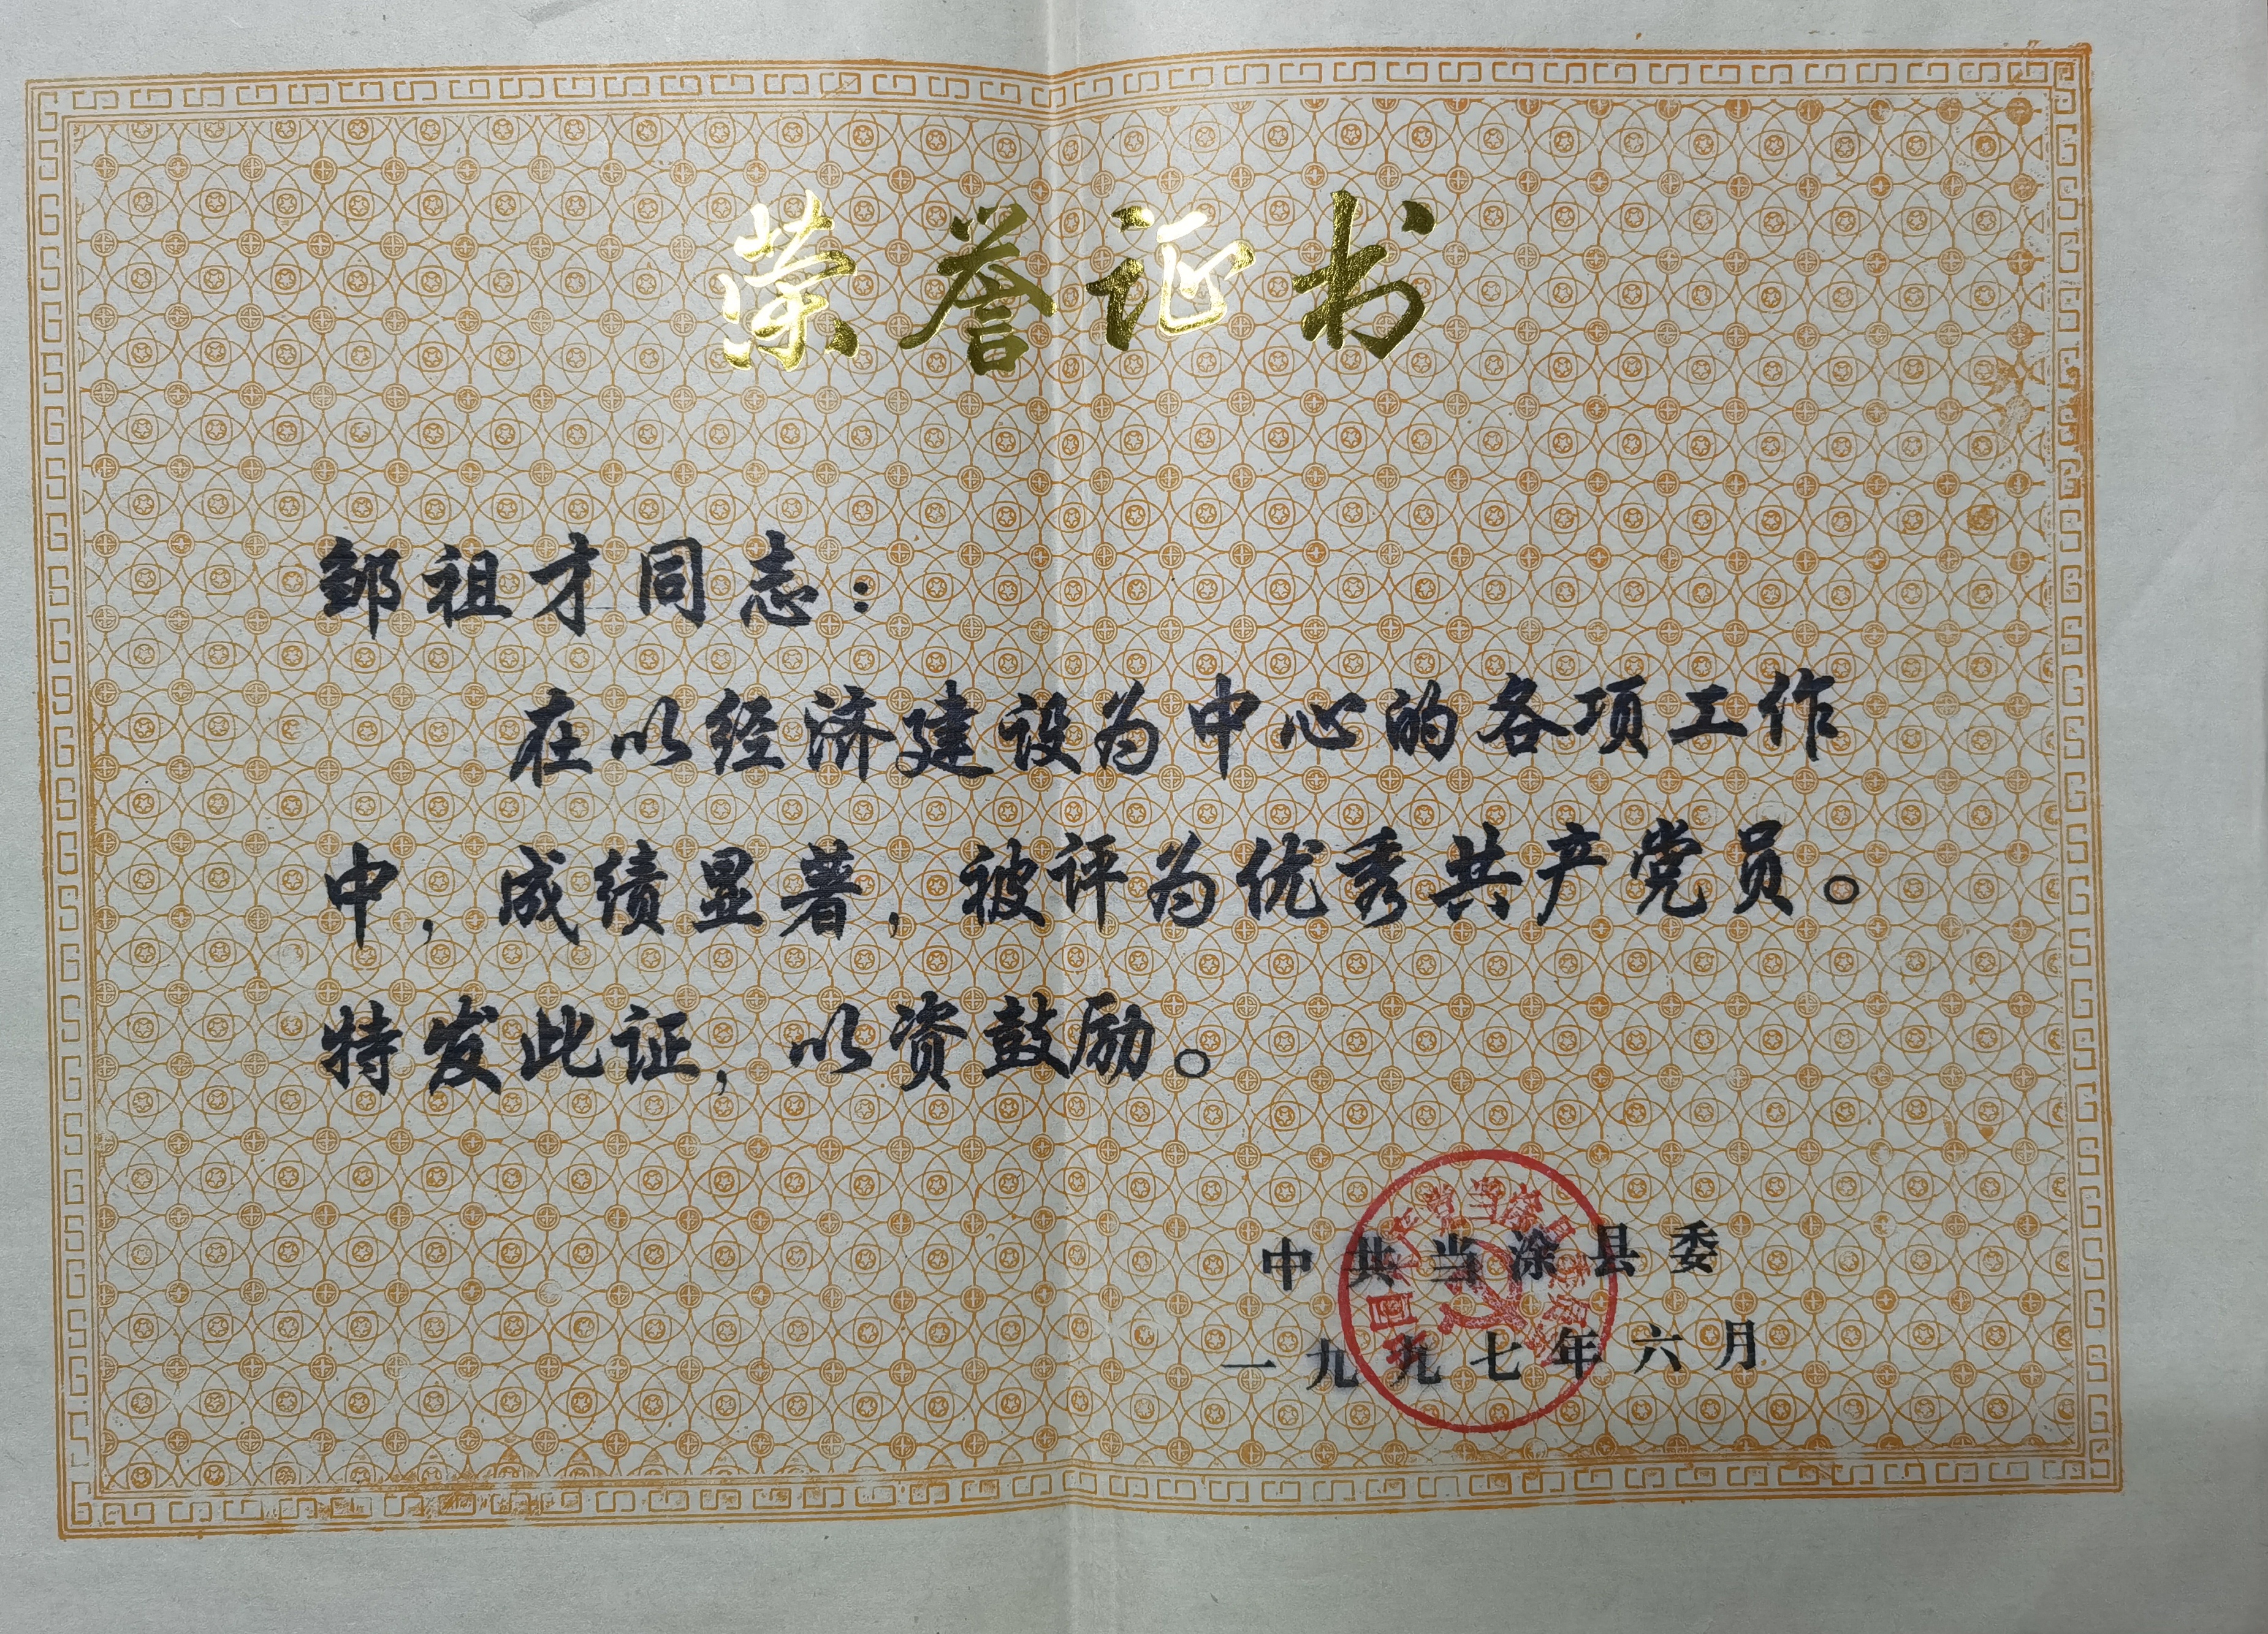 荣誉证书
邹祖才同志：
在以经济建设为中心的各项工作
中，成绩显著，被评为优秀共产党员。
特发此证，以资鼓励。
中共当涂县委
一九九七年六月
中国共产党当涂县委员会